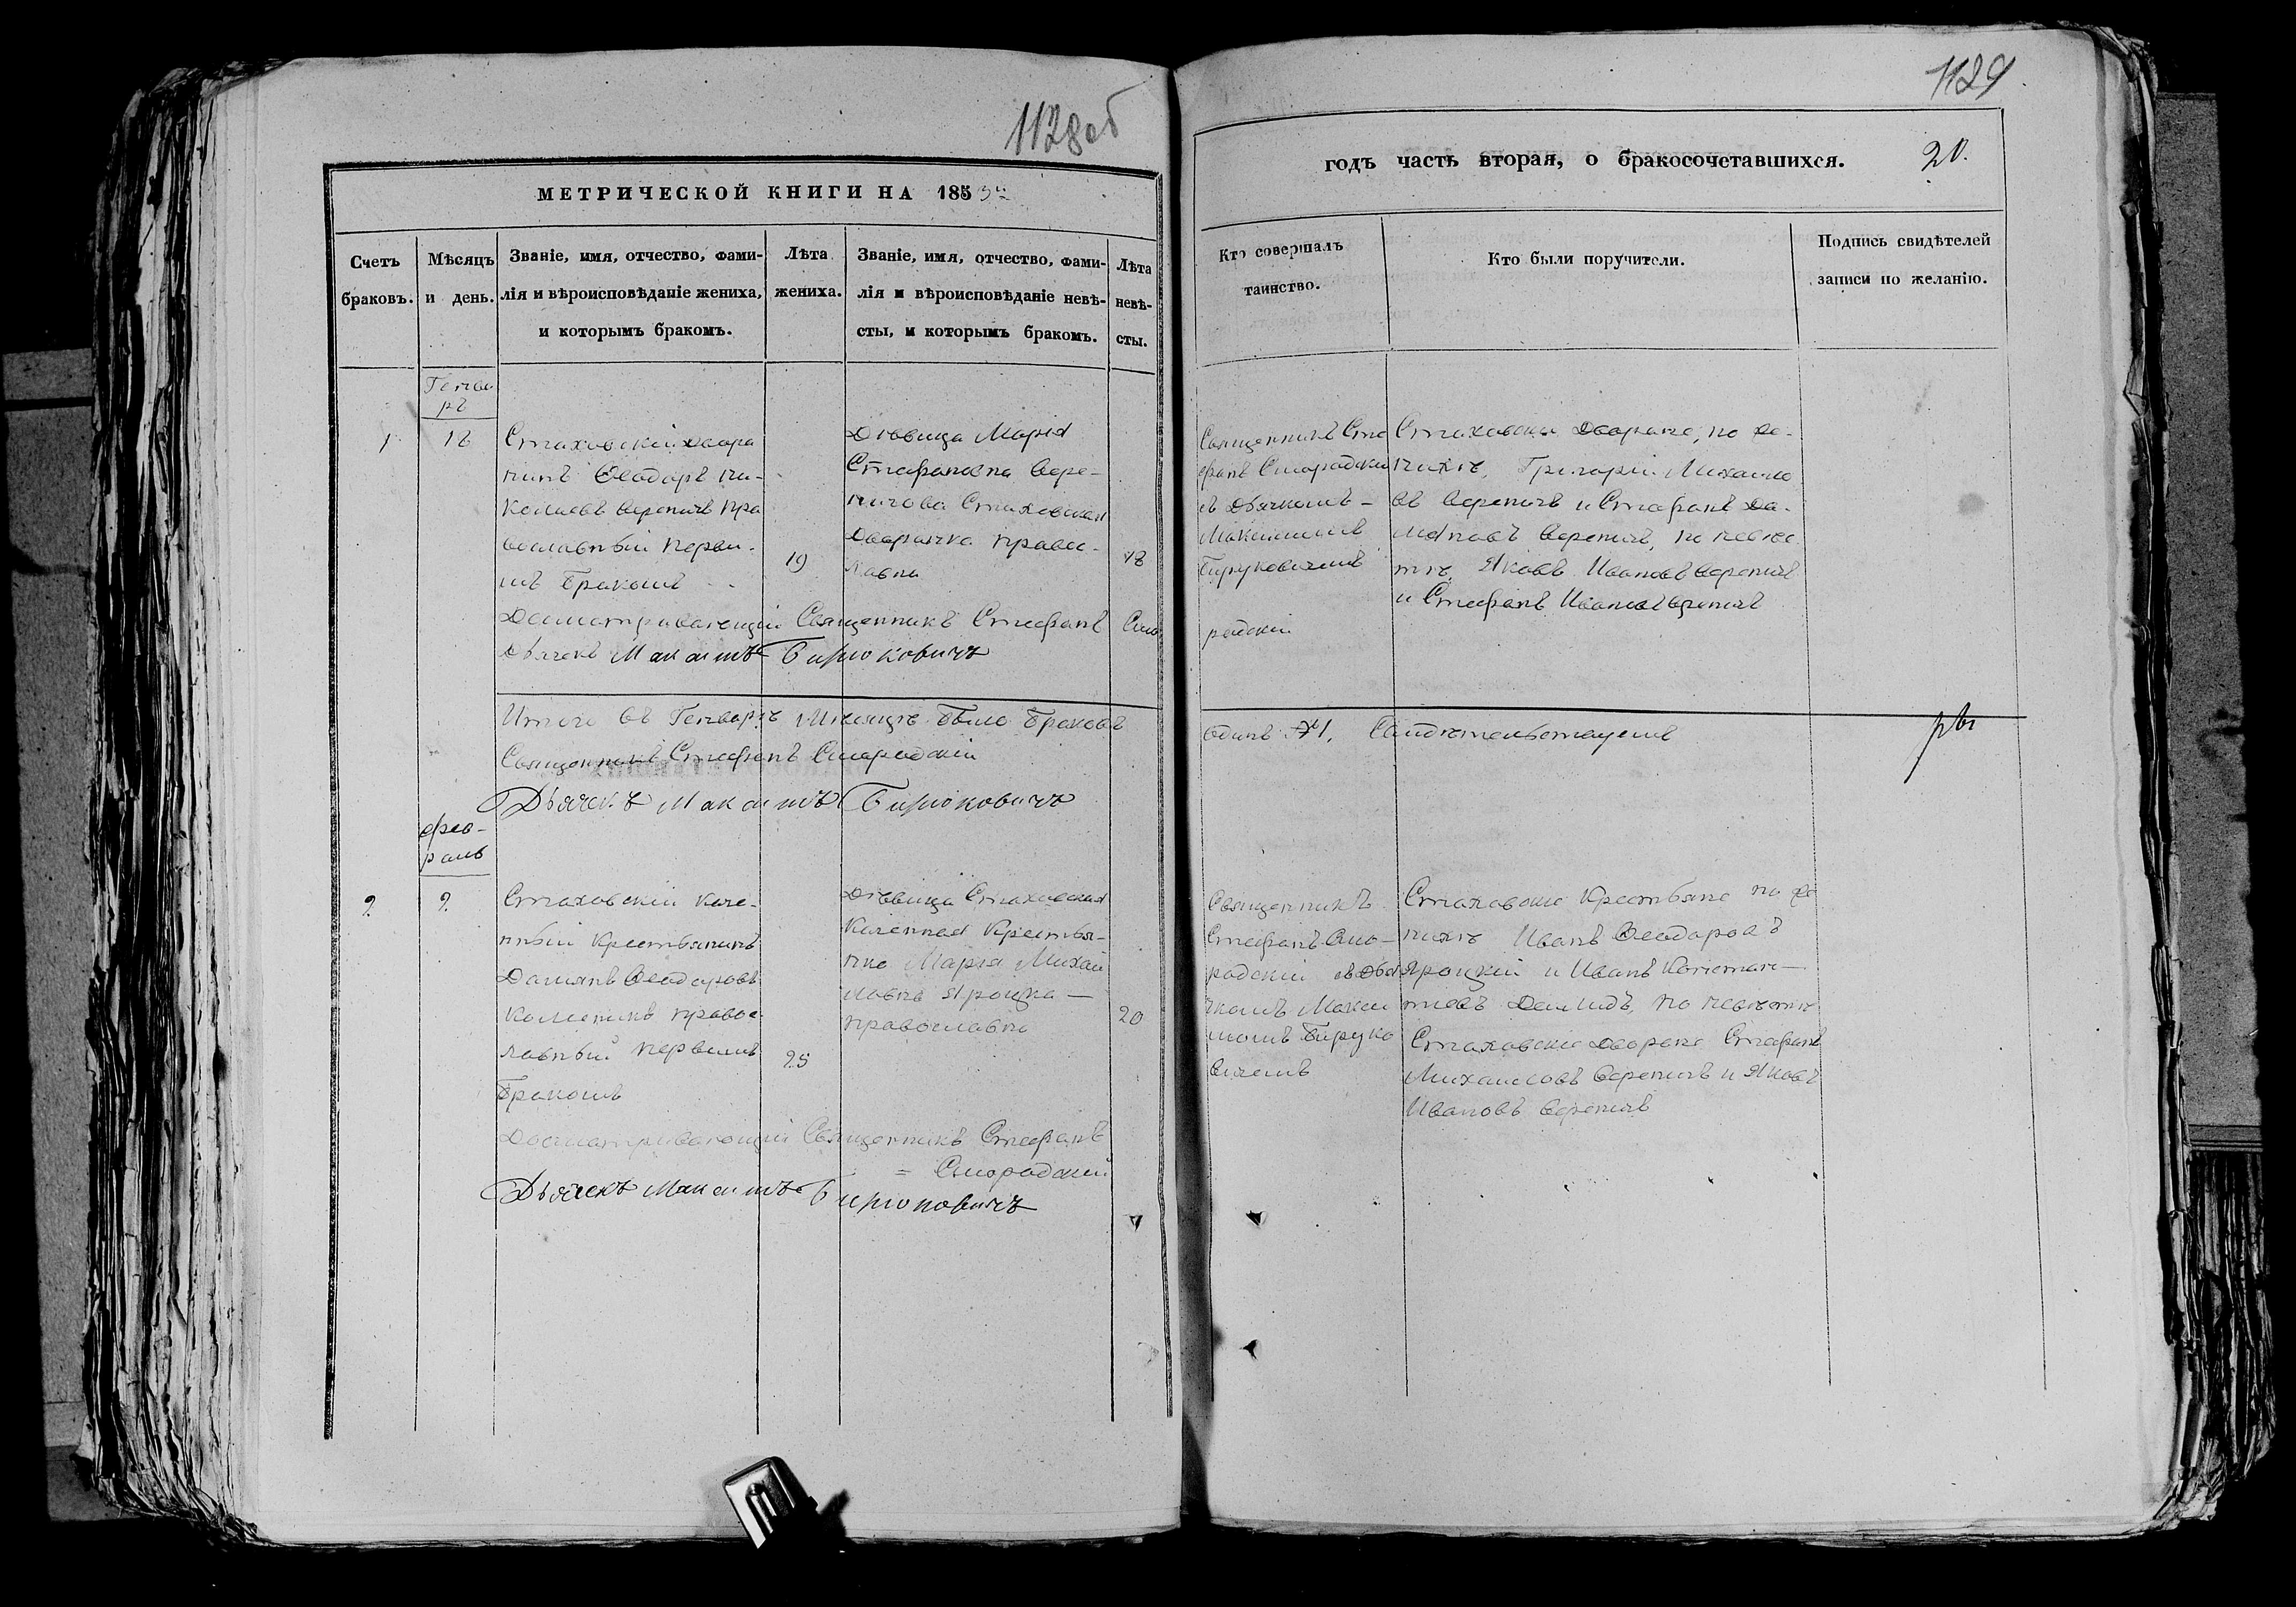 1128об
МЕТРИЧЕСКОЙ КНИГИ НА 1853
Счетъ браковъ.
Мѣсяцъ и день.
Званіе, имя, отчество, фами-
лія и вѣроисповѣданіе жениха,
и которымъ бракомъ.
Лѣта
жениха.
Званіе, имя, отчество, фами-
лія и вѣроисповѣданіе невѣ-
сты, и которымъ бракомъ.
Лѣта
невѣ-
сты.
Генва
рь
1
18
Стаховскій дворя
нинъ Ѳеодоръ Ни-
колаевъ Вереничъ пра
вославный перви-
мъ бракомъ
19
Дѣвица Марія
Стефановна Вере-
ничова Стаховская
Дворянка правос-
лавна
18
Досматривающій Священникъ Стефанъ Смо
родскій
Дьячекъ Максимъ Бирюковичъ
Итого въ Генварѣ Мѣсяцѣ было браковъ
одинъ 1. Свидѣтельствуемъ
Священникъ Стефанъ Смородскій
Дьячекъ Максимъ Бирюковичъ
Фев-
раль
2
2
Стаховскій казе-
нный крестьянинъ
Даміанъ Ѳеодоровъ
Коленикъ правос-
лавный первымъ
бракомъ
25
Дѣвица Стаховская
Казенная Крестья-
нка Марія Михай
ловна Яроцка
православна
20
Досматривающій Священникъ Стефанъ
Смородскій
Дьячекъ Максимъ Бирюковичъ
1129
годъ часть вторая, о бракосочетавшихся.
20.
Кто совершалъ
таинство.
Кто были поручители.
Подпись свидѣтелей
записи по желанію.
Священникъ Сте
фанъ Смородски
съ Дьячкомъ
Максимомъ
Бируковичемъ
Стаховски Дворяне, по же-
нихѣ, Григорій Михаило
въ Вереничъ и Стефанъ Да-
міановъ Вереничъ, по невѣс
тѣ, Яковъ Ивановъ Вереничъ
и Стефанъ Ивановъ Вереничъ
Священникъ
Стефанъ Смо-
родскій съ Дья
чкомъ Макси
момъ Бируко
вичемъ
Стаховские Крестьяне по же
нихѣ Иванъ Ѳеодоровъ
Яроцкій и Иванъ Констан-
тиновъ Демидъ, по невѣстѣ
Стаховски Дворяне Стефанъ
Михаиловъ Вереничъ и Яковъ
Ивановъ Вереничъ